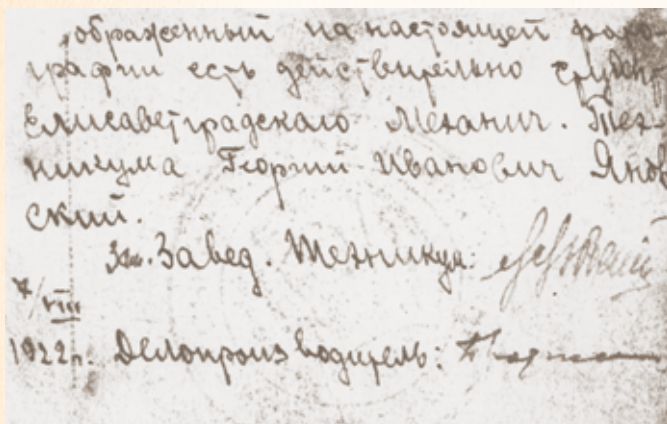 ображенный на настоящей фото-
графии есть действительно студент
Елисаветградскаго Механич. Тех-
никума Георгий Иванович Янов
ский.
Зам. Завед. Техникум:
7/VIII
1922г. Делопроизводитель: